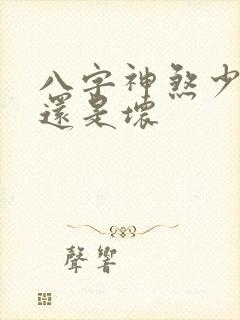 八字神煞少
還是壞
聲響